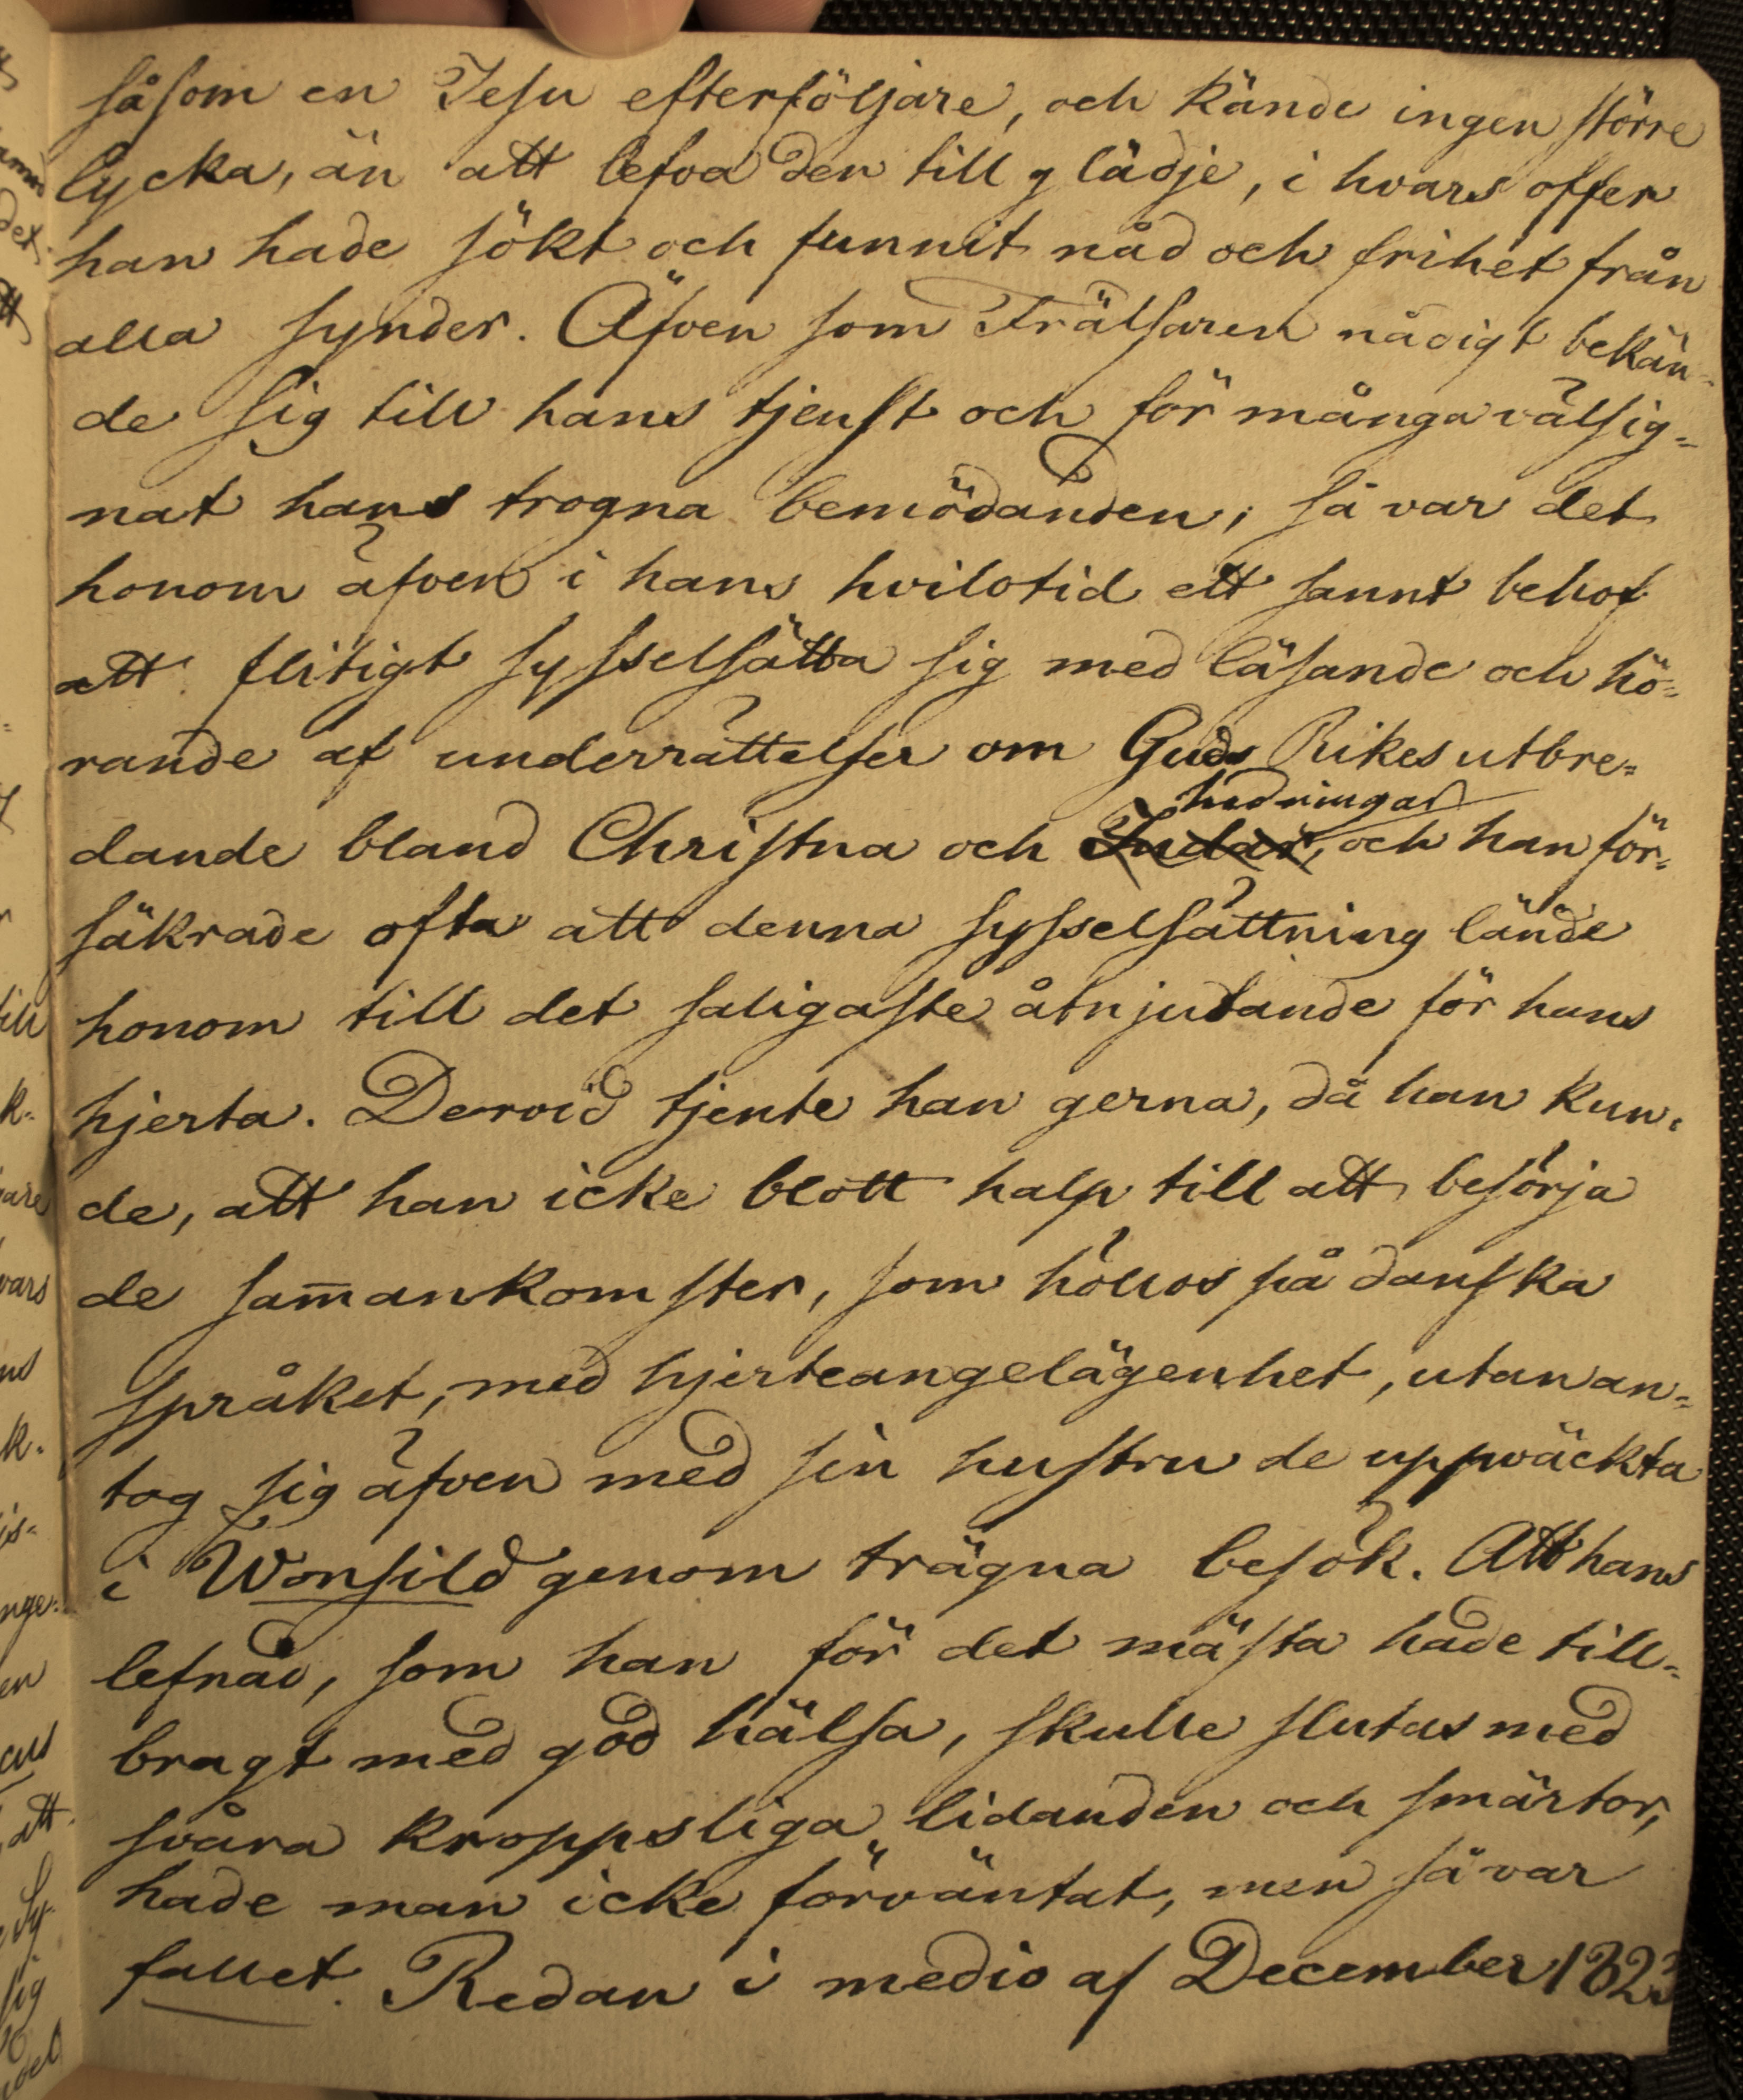 såsom en Jesu efterföljare, och kände ingen större
lycka, än att lefva den till glädje, i hvars offer
han hade sökt och funnit nåd och frihet från
alla synder. Äfven som Frälsaren nådigt bekän-
de sig till hans tjenst och för många välsig=
nat hans trogna bemödanden, så var det
honom äfven i hans hvilotid ett sannt behof
att flitigt sysselsätta sig med läsande och hö=
rande af underrättelser om Guds Rikes utbre=
hedningar
dande bland Christna och Judar, och han för=
säkrade ofta att denna sysselsättning lände
honom till det saligaste åtnjutande för hans
hjerta. Dervid tjente han gerna, då han kun-
de, att han icke blott halp till att besörja
de sam̄ankomster, som höllos på danska
språket, med hjerteangelägenhet, utan an=
tog sig äfven med sin hustru de uppväckta
i Wonsild genom trägna besök. Att hans
lefnad, som han för det mästa hade till=
bragt med god hälsa, skulle slutas med
svåra kroppsliga lidanden och smärtor,
hade man icke förväntat, men så var
fallet. Redan i medio af December 1823